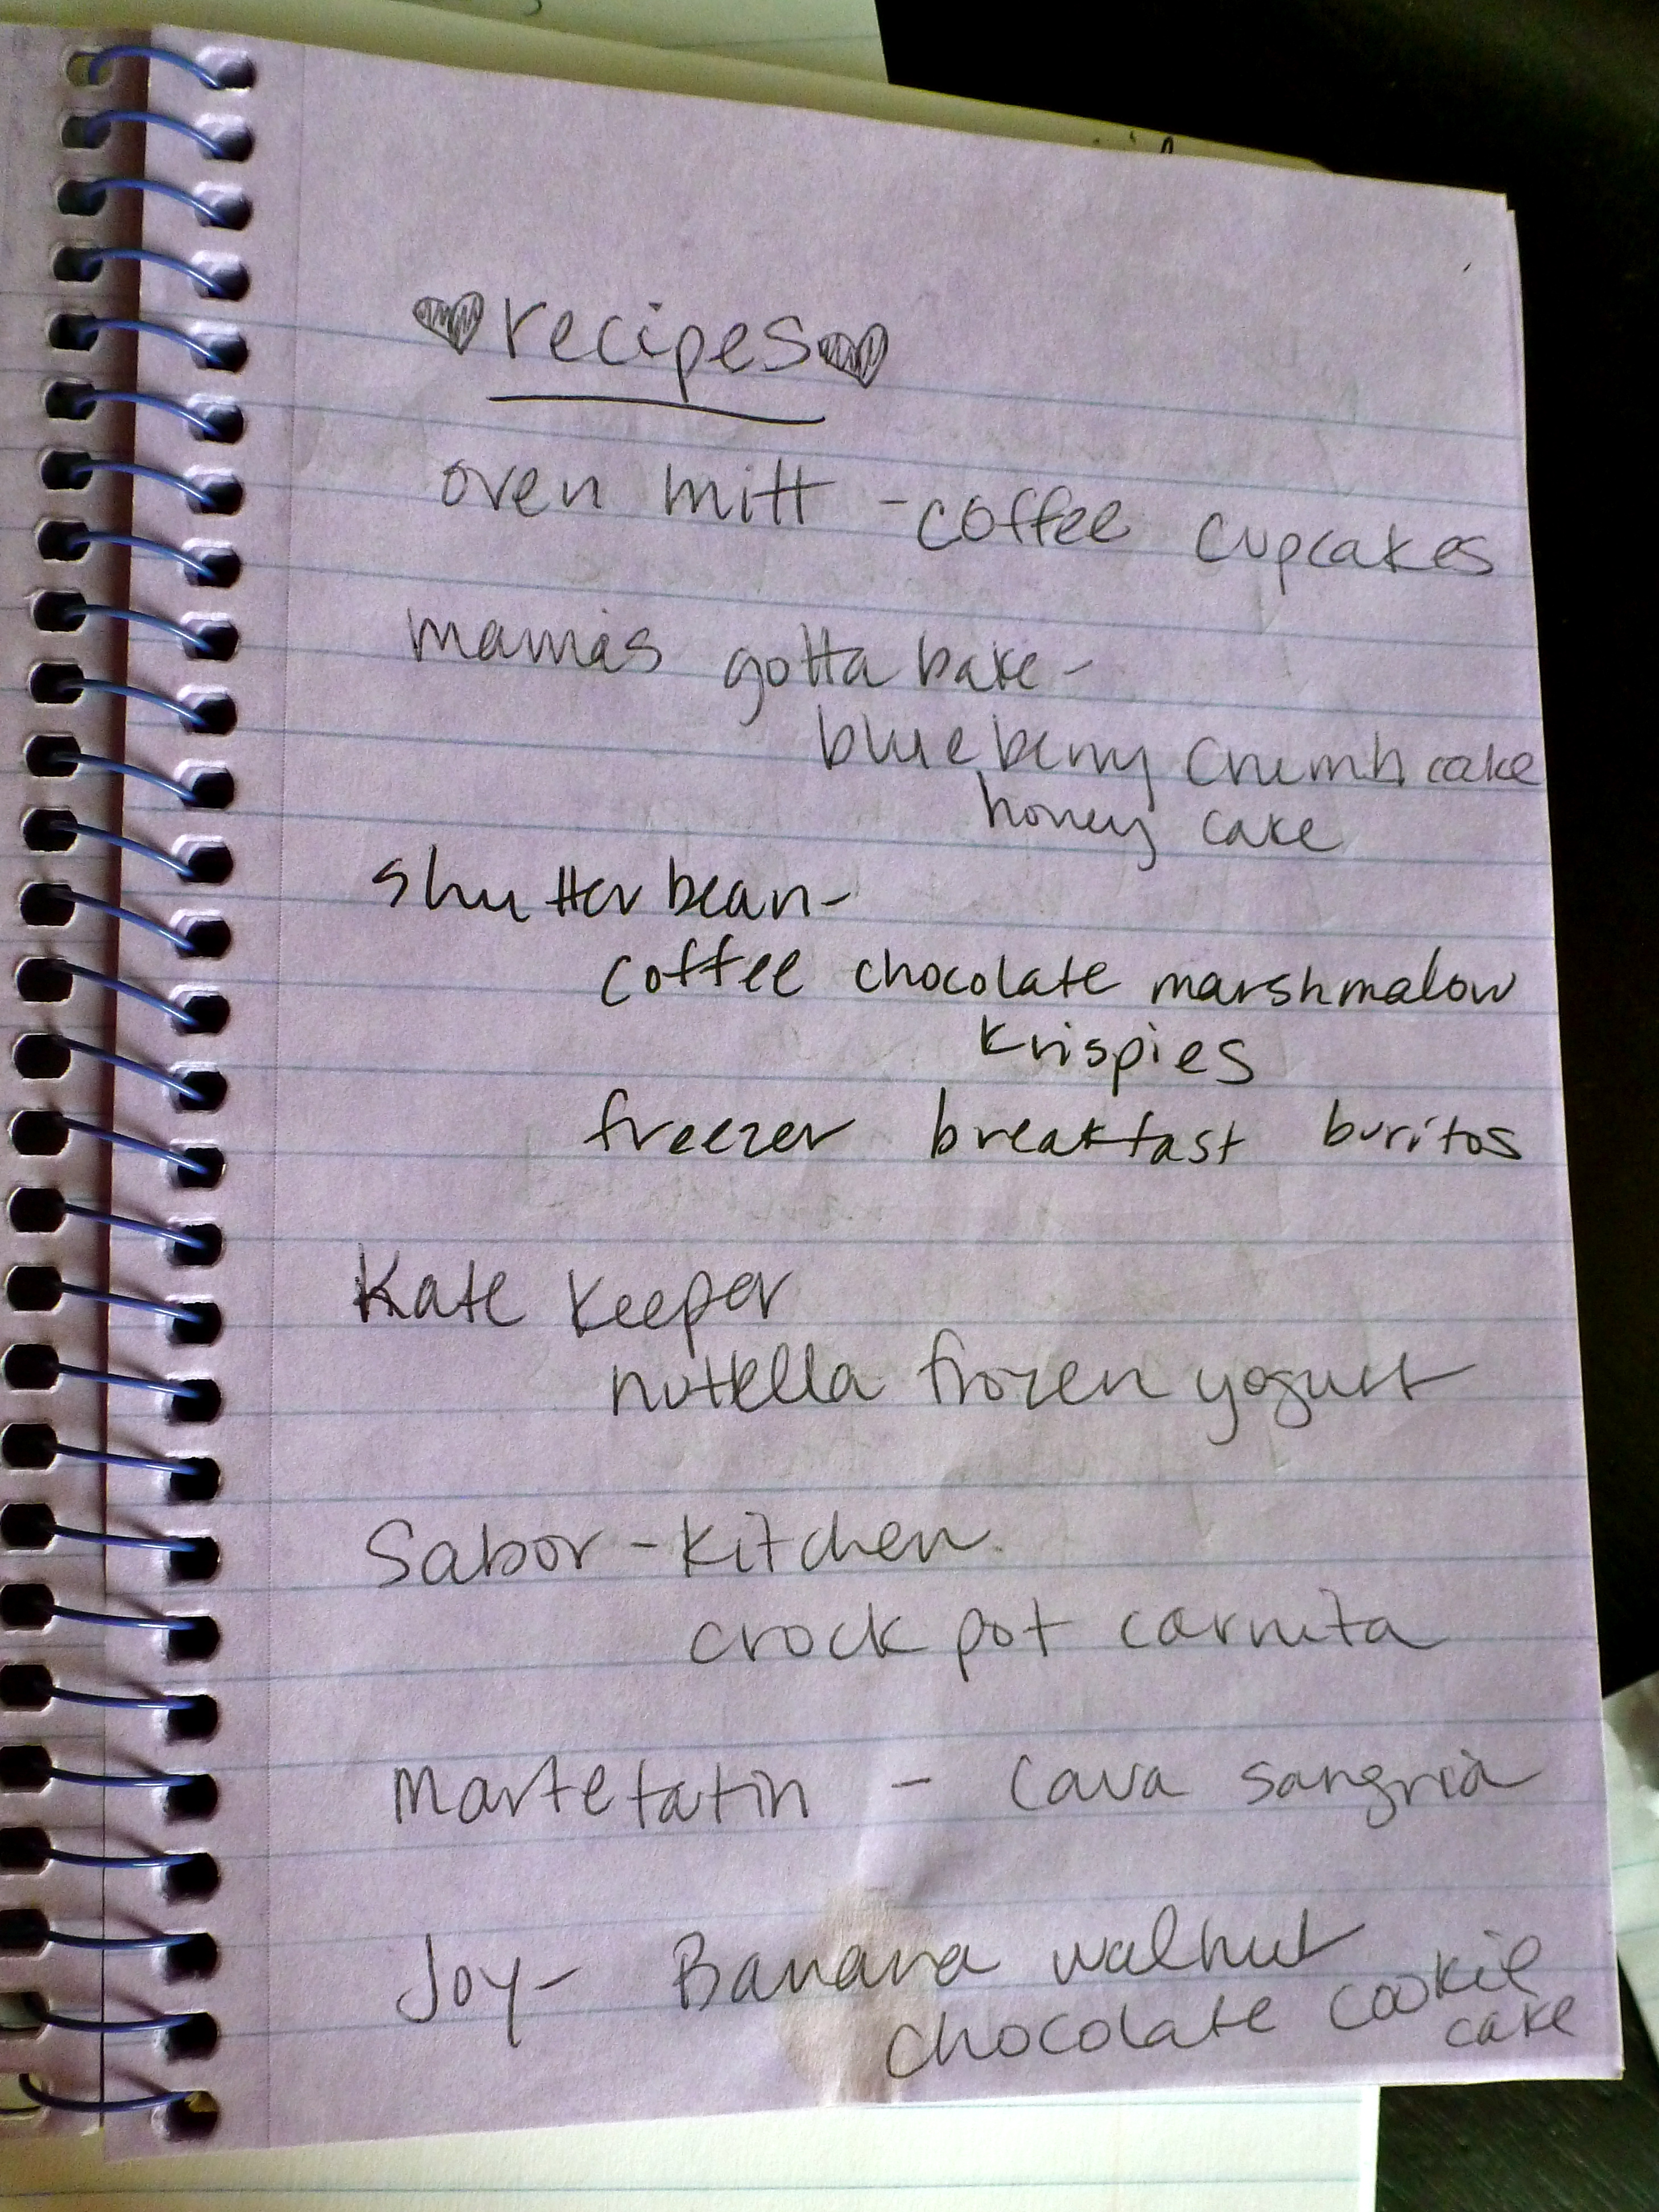 ♥recipes♥
oven mitt - coffee cupcakes
mamas gotta bake -
blueberry crumb cake
honey cake
shutterbean -
coffee chocolate marshmalow
krispies
freezer breakfast buritos
Kate Keeper
nutella frozen yogurt
Sabor - Kitchen
crock pot carnita
Martetatin - Cava sangria
Joy - Banana walnut
chocolate cookie
cake